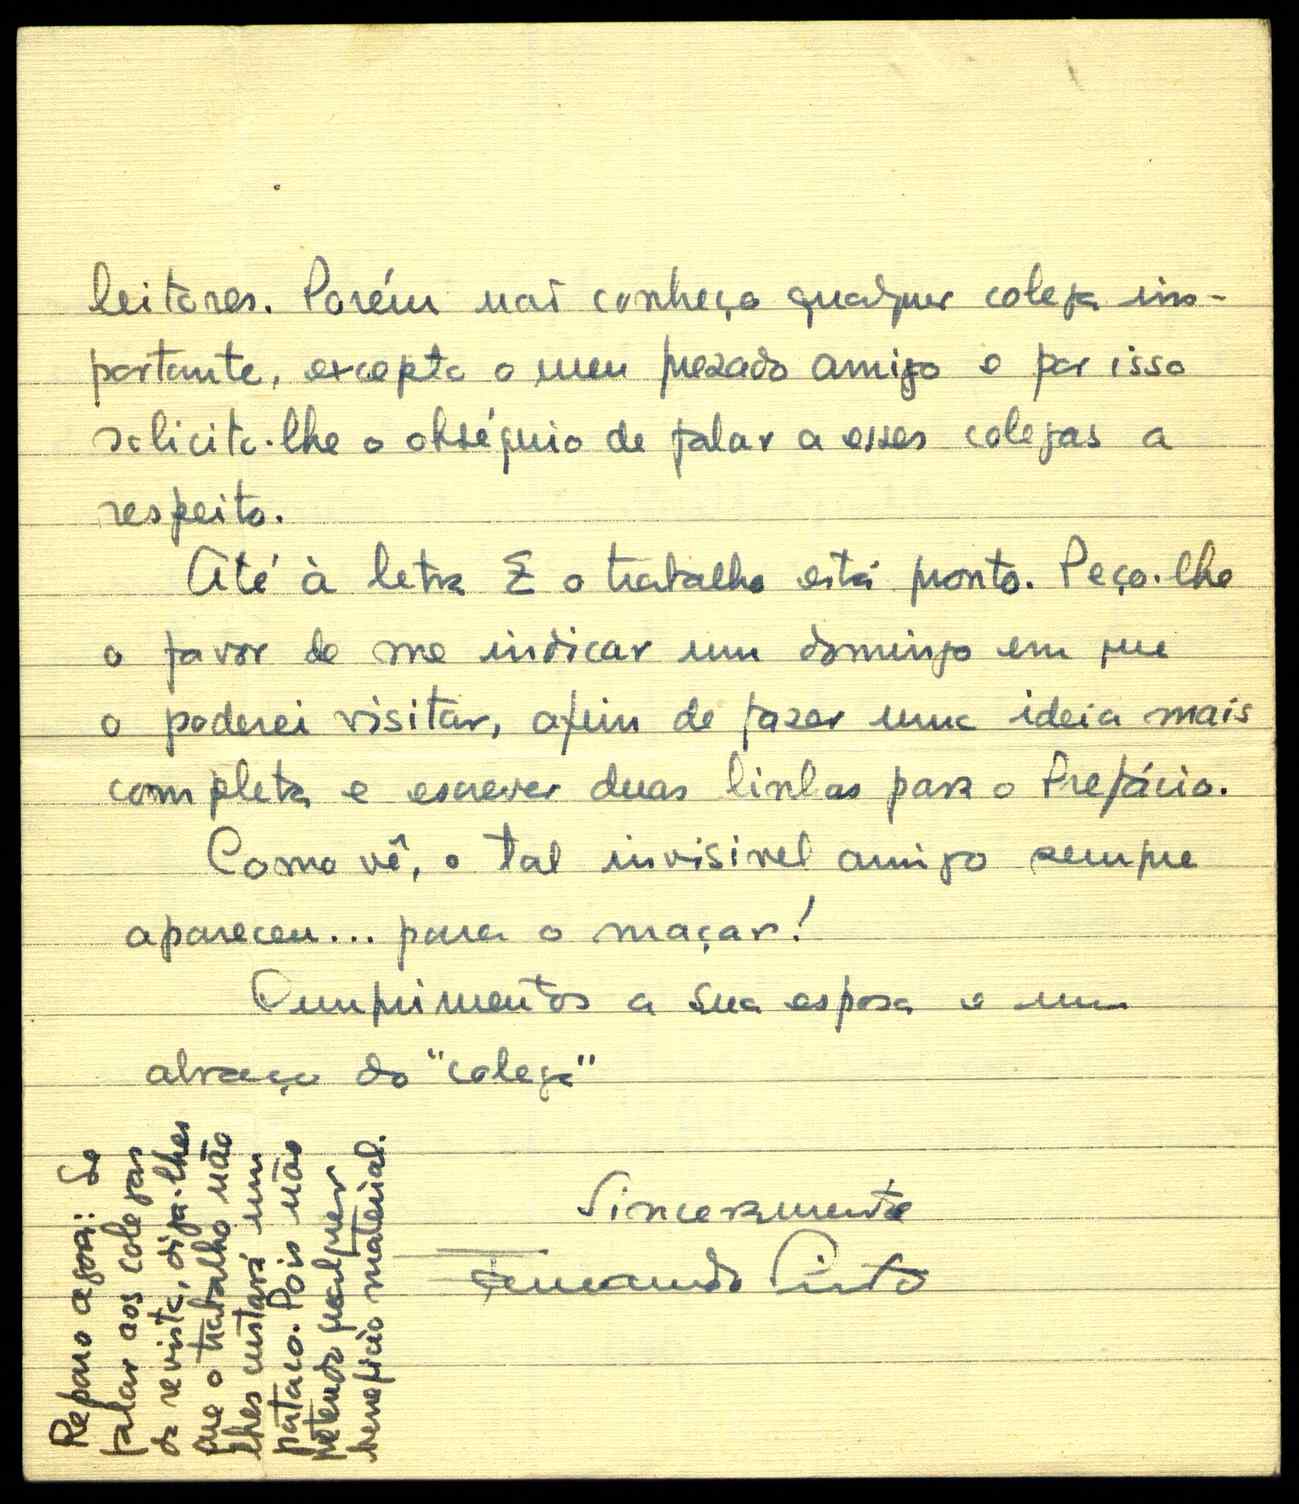 leitores. Porém não conheço qualquer colega im-
portante, excepto o meu prezado amigo e por isso
solicito-lhe o obséquio de falar a esses colegas a
respeito.
Até à letra E o trabalho está pronto. Peço-lhe
o favor de me indicar um domingo em que
o poderei visitar, afim de fazer uma ideia mais
completa e escrever duas linhas para o Prefácio.
Como vê, o tal invisivel amigo sempre
apareceu... para o maçar!
Cumprimentos a sua esposa e um
abraço do "colega"
Sinceramente
Fernando Pinto
Reparo agora: Se
falar aos colegas
da revista, diga-lhes
que o trabalho não
lhes custará um
pataco. Pois não
pretendo qualquer
benefício material.